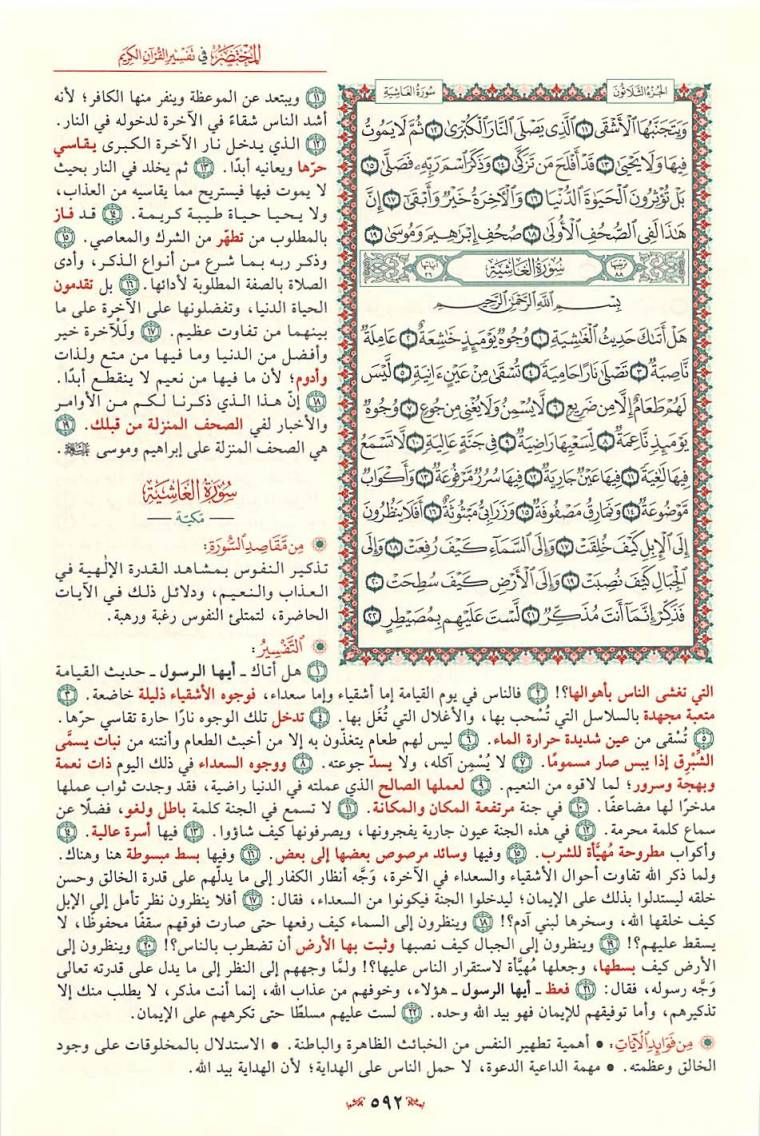 المختصر في تفسير القرآن الكريم
الجزء الثلاثون
سورة الغاشية
وَيَتَجَنَّبُهَا ٱلْأَشْقَى ١١ ٱلَّذِى يَصْلَى ٱلنَّارَ ٱلْكُبْرَىٰ ١٢ ثُمَّ لَا يَمُوتُ
فِيهَا وَلَا يَحْيَىٰ ١٣ قَدْ أَفْلَحَ مَن تَزَكَّىٰ ١٤ وَذَكَرَ ٱسْمَ رَبِّهِۦ فَصَلَّىٰ ١٥
بَلْ تُؤْثِرُونَ ٱلْحَيَوٰةَ ٱلدُّنْيَا ١٦ وَٱلْـَٔاخِرَةُ خَيْرٌ وَأَبْقَىٰٓ ١٧ إِنَّ
هَـٰذَا لَفِى ٱلصُّحُفِ ٱلْأُولَىٰ ١٨ صُحُفِ إِبْرَٰهِيمَ وَمُوسَىٰ ١٩
ترتيبها ٨٨ سُورَةُ الغَاشِيَةِ آياتها ٢٦
بِسْمِ ٱللَّهِ ٱلرَّحْمَـٰنِ ٱلرَّحِيمِ
هَلْ أَتَىٰكَ حَدِيثُ ٱلْغَـٰشِيَةِ ١ وُجُوهٌ يَوْمَئِذٍ خَـٰشِعَةٌ ٢ عَامِلَةٌ
نَّاصِبَةٌ ٣ تَصْلَىٰ نَارًا حَامِيَةً ٤ تُسْقَىٰ مِنْ عَيْنٍ ءَانِيَةٍ ٥ لَّيْسَ
لَهُمْ طَعَامٌ إِلَّا مِن ضَرِيعٍ ٦ لَّا يُسْمِنُ وَلَا يُغْنِى مِن جُوعٍ ٧ وُجُوهٌ
يَوْمَئِذٍ نَّاعِمَةٌ ٨ لِّسَعْيِهَا رَاضِيَةٌ ٩ فِى جَنَّةٍ عَالِيَةٍ ١٠ لَّا تَسْمَعُ
فِيهَا لَـٰغِيَةً ١١ فِيهَا عَيْنٌ جَارِيَةٌ ١٢ فِيهَا سُرُرٌ مَّرْفُوعَةٌ ١٣ وَأَكْوَابٌ
مَّوْضُوعَةٌ ١٤ وَنَمَارِقُ مَصْفُوفَةٌ ١٥ وَزَرَابِىُّ مَبْثُوثَةٌ ١٦ أَفَلَا يَنظُرُونَ
إِلَى ٱلْإِبِلِ كَيْفَ خُلِقَتْ ١٧ وَإِلَى ٱلسَّمَآءِ كَيْفَ رُفِعَتْ ١٨ وَإِلَى
ٱلْجِبَالِ كَيْفَ نُصِبَتْ ١٩ وَإِلَى ٱلْأَرْضِ كَيْفَ سُطِحَتْ ٢٠
فَذَكِّرْ إِنَّمَآ أَنتَ مُذَكِّرٌ ٢١ لَّسْتَ عَلَيْهِم بِمُصَيْطِرٍ ٢٢
١١ ويبتعد عن الموعظة وينفر منها الكافر؛ لأنه
أشد الناس شقاءً في الآخرة لدخوله في النار.
١٢ الذي يدخل نار الآخرة الكبرى يقاسي
حرّها ويعانيه أبدًا. ١٣ ثم يخلد في النار بحيث
لا يموت فيها فيستريح مما يقاسيه من العذاب،
ولا يحيا حياة طيبة كريمة. ١٤ قد فاز
بالمطلوب من تطهّر من الشرك والمعاصي. ١٥
وذكر ربه بما شرع من أنواع الذكر، وأدى
الصلاة بالصفة المطلوبة لأدائها. ١٦ بل تقدمون
الحياة الدنيا، وتفضلونها على الآخرة على ما
بينهما من تفاوت عظيم. ١٧ وللْآخرة خير
وأفضل من الدنيا وما فيها من متع ولذات
وأدوم؛ لأن ما فيها من نعيم لا ينقطع أبدًا.
١٨ إنّ هذا الذي ذكرنا لكم من الأوامر
والأخبار لفي الصحف المنزلة من قبلك. ١٩
هي الصحف المنزلة على إبراهيم وموسى عليهما السلام.
سُورَةُ الغَاشِيَةِ
— مَكيّة —
مِن مَّقَاصِدِ السُّورَةِ:
تذكير النفوس بمشاهد القدرة الإلٰهية في
العذاب والنعيم، ودلائل ذلك في الآيات
الحاضرة، لتمتلئ النفوس رغبة ورهبة.
التَّفْسِيرُ:
١ هل أتاك ـ أيها الرسول ـ حديث القيامة
التي تغشى الناس بأهوالها؟! ٢ فالناس في يوم القيامة إما أشقياء وإما سعداء، فوجوه الأشقياء ذليلة خاضعة. ٣
متعبة مجهدة بالسلاسل التي تُسْحب بها، والأغلال التي تُغَل بها. ٤ تدخل تلك الوجوه نارًا حارة تقاسي حرّها.
٥ تُسْقى من عين شديدة حرارة الماء. ٦ ليس لهم طعام يتغذّون به إلا من أخبث الطعام وأنتنه من نبات يسمَّى
الشِّبْرِق إذا يبس صار مسمومًا. ٧ لا يُسْمِن آكله، ولا يسدّ جوعته. ٨ ووجوه السعداء في ذلك اليوم ذات نعمة
وبهجة وسرور؛ لما لاقوه من النعيم. ٩ لعملها الصالح الذي عملته في الدنيا راضية، فقد وجدت ثواب عملها
مدخرًا لها مضاعفًا. ١٠ في جنة مرتفعة المكان والمكانة. ١١ لا تسمع في الجنة كلمة باطل ولغو، فضلًا عن
سماع كلمة محرمة. ١٢ في هذه الجنة عيون جارية يفجرونها، ويصرفونها كيف شاؤوا. ١٣ فيها أسرة عالية. ١٤
وأكواب مطروحة مُهيَّأة للشرب. ١٥ وفيها وسائد مرصوص بعضها إلى بعض. ١٦ وفيها بسط مبسوطة هنا وهناك.
ولما ذكر الله تفاوت أحوال الأشقياء والسعداء في الآخرة، وَجَّه أنظار الكفار إلى ما يدلّهم على قدرة الخالق وحسن
خلقه ليستدلوا بذلك على الإيمان؛ ليدخلوا الجنة فيكونوا من السعداء، فقال: ١٧ أفلا ينظرون نظر تأمل إلى الإبل
كيف خلقها الله، وسخرها لبني آدم؟! ١٨ وينظرون إلى السماء كيف رفعها حتى صارت فوقهم سقفًا محفوظًا، لا
يسقط عليهم؟! ١٩ وينظرون إلى الجبال كيف نصبها وثبت بها الأرض أن تضطرب بالناس؟! ٢٠ وينظرون إلى
الأرض كيف بسطها، وجعلها مُهيَّأة لاستقرار الناس عليها؟! ولمَّا وجههم إلى النظر إلى ما يدل على قدرته تعالى
وَجَّه رسوله، فقال: ٢١ فعظ ـ أيها الرسول ـ هؤلاء، وخوفهم من عذاب الله، إنما أنت مذكر، لا يطلب منك إلا
تذكيرهم، وأما توفيقهم للإيمان فهو بيد الله وحده. ٢٢ لست عليهم مسلطًا حتى تكرههم على الإيمان.
مِن فَوَابِدِ الْآيَاتِ: • أهمية تطهير النفس من الخبائث الظاهرة والباطنة. • الاستدلال بالمخلوقات على وجود
الخالق وعظمته. • مهمة الداعية الدعوة، لا حمل الناس على الهداية؛ لأن الهداية بيد الله.
٥٩٢